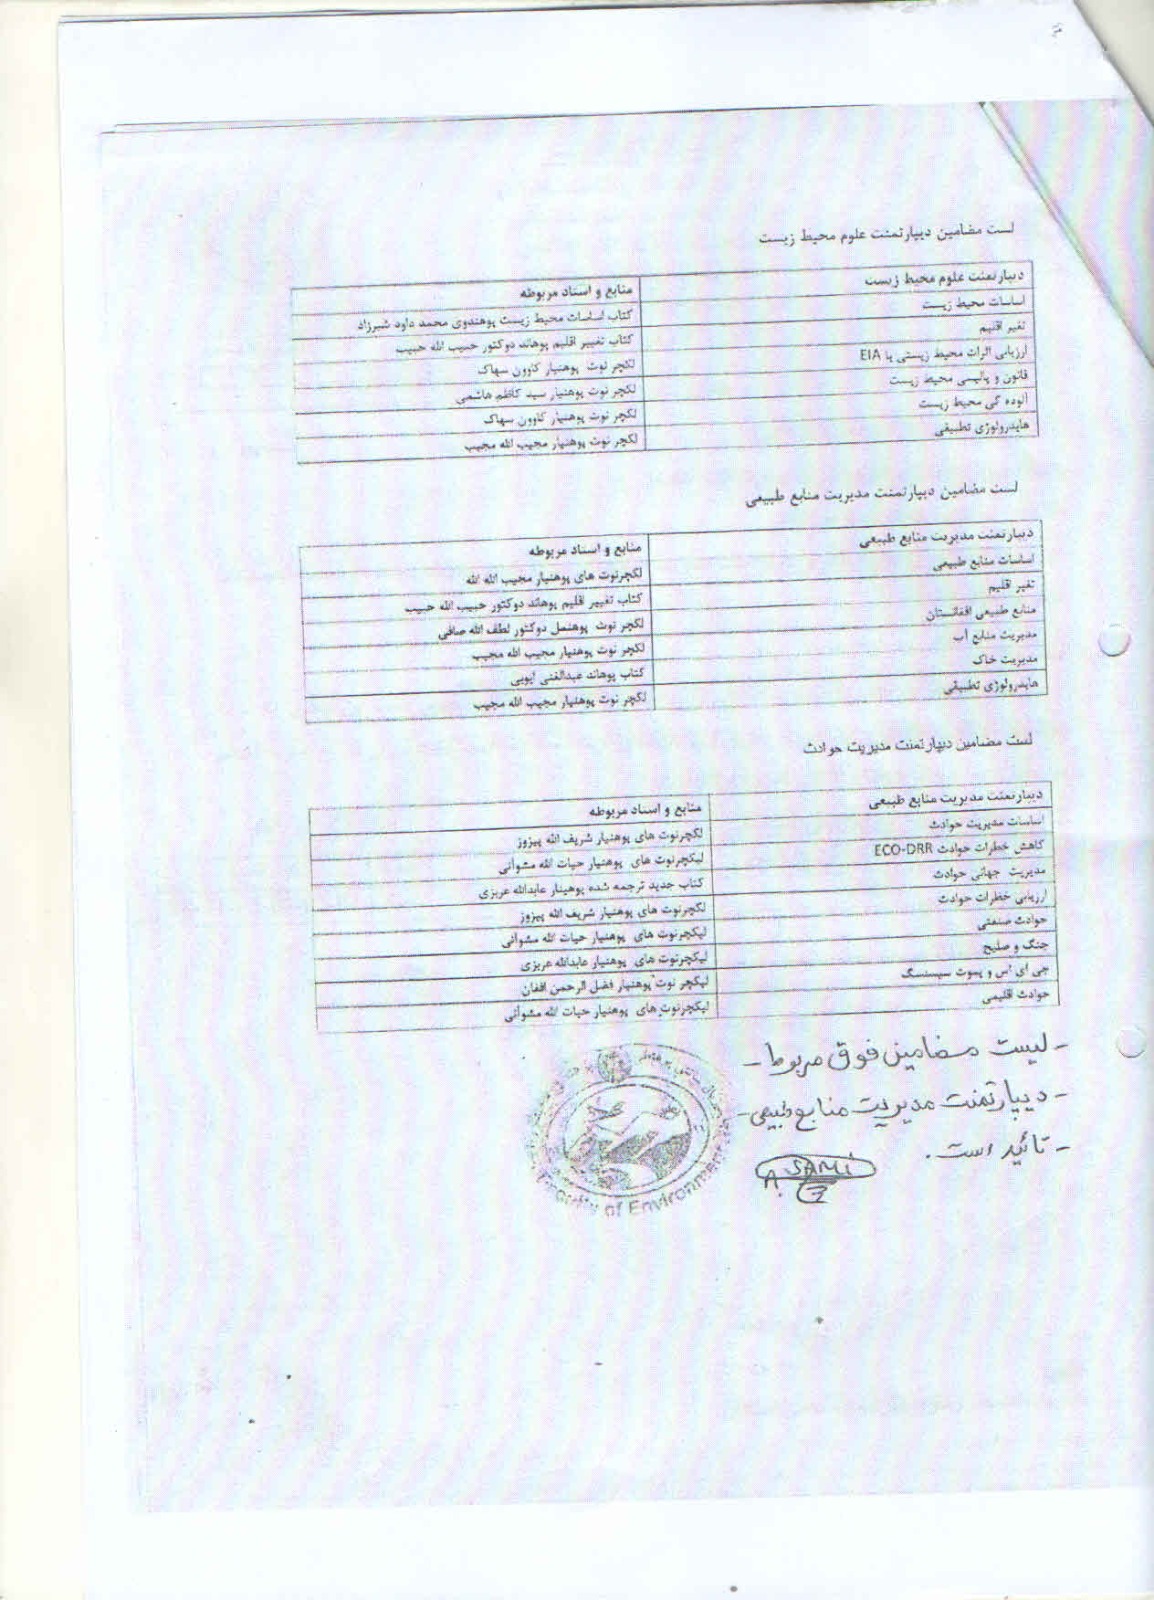 لست مضامین دیپارتمنت علوم محیط زیست
دیپارتمنت علوم محیط زیست منابع و اسناد مربوطه
اساسات محیط زیست کتاب اساسات محیط زیست پوهندوی محمد داود شیرزاد
تغیر اقلیم کتاب تغییر اقلیم پوهاند دوکتور حبیب الله حبیب
ارزیابی اثرات محیط زیستی یا EIA لکچر نوت پوهنیار کاوون سهاک
قانون و پالیسی محیط زیست لکچر نوت پوهنیار سید کاظم هاشمی
آلوده گی محیط زیست لکچر نوت پوهنیار کاوون سهاک
هایدرولوژی تطبیقی لکچر نوت پوهنیار مجیب الله مجیب
لست مضامین دیپارتمنت مدیریت منابع طبیعی
دیپارتمنت مدیریت منابع طبیعی منابع و اسناد مربوطه
اساسات منابع طبیعی لکچرنوت های پوهنیار مجیب الله الله
تغیر اقلیم کتاب تغییر اقلیم پوهاند دوکتور حبیب الله حبیب
منابع طبیعی افغانستان لکچر نوت پوهنمل دوکتور لطف الله صافی
مدیریت منابع آب لکچر نوت پوهنیار مجیب الله مجیب
مدیریت خاک کتاب پوهاند عبدالغنی ایوبی
هایدرولوژی تطبیقی لکچر نوت پوهنیار مجیب الله مجیب
لست مضامین دیپارتمنت مدیریت حوادث
دیپارتمنت مدیریت منابع طبیعی منابع و اسناد مربوطه
اساسات مدیریت حوادث لکچرنوت های پوهنیار شریف الله پیروز
کاهش خطرات حوادث ECO-DRR لیکچرنوت های پوهنیار حیات الله مشوانی
مدیریت جهانی حوادث کتاب جدید ترجمه شده پوهینار عابدالله عزیزی
ارزیابی خطرات حوادث لکچرنوت های پوهنیار شریف الله پیروز
حوادث صنعتی لیکچرنوت های پوهنیار حیات الله مشوانی
جنگ و صلح لیکچرنوت های پوهنیار عابدالله عزیزی
جی ای اس و سیسنگ لیکچر نوت پوهنیار فضل الرحمن افغان
حوادث اقلیمی لیکچرنوت های پوهنیار حیات الله مشوانی
- لیست مضامین فوق مربوط -
- دیپارتمنت مدیریت منابع طبیعی -
- تائید است.
A. SAMI
Faculty of Environment